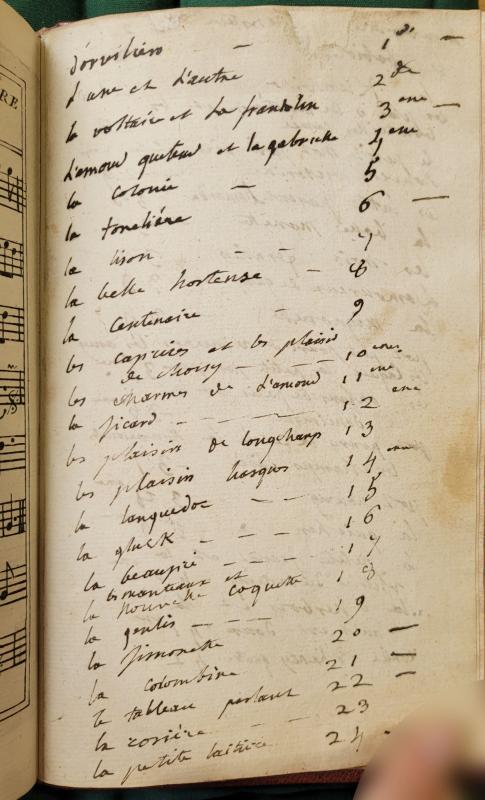 RE
d'orvilliers — 1re —
l'une et l'autre 2de
le voltaire et la franklin 3eme —
l'amour queteur et la gabrielle 4eme
la colonie — 5
la toneliére 6 —
la lison — — 7
la belle hortense — 8
la Centenaire — 9
les caprices et les plaisir
de Choisy — — 10eme
les charmes de l'amour 11eme
la picard — — — — 12eme
les plaisirs de longchamps 13
les plaisirs basques 14eme
la languedoc — — 15
la gluck — — — — 16
la beaupré — — — 17
les manteaux et
la nouvelle coquette 18
la genlis — — — — 19
la simonette 20 —
la colombine 21 —
le tableau parlant 22 —
la rosiére — — 23
la petite laitiere 24 —